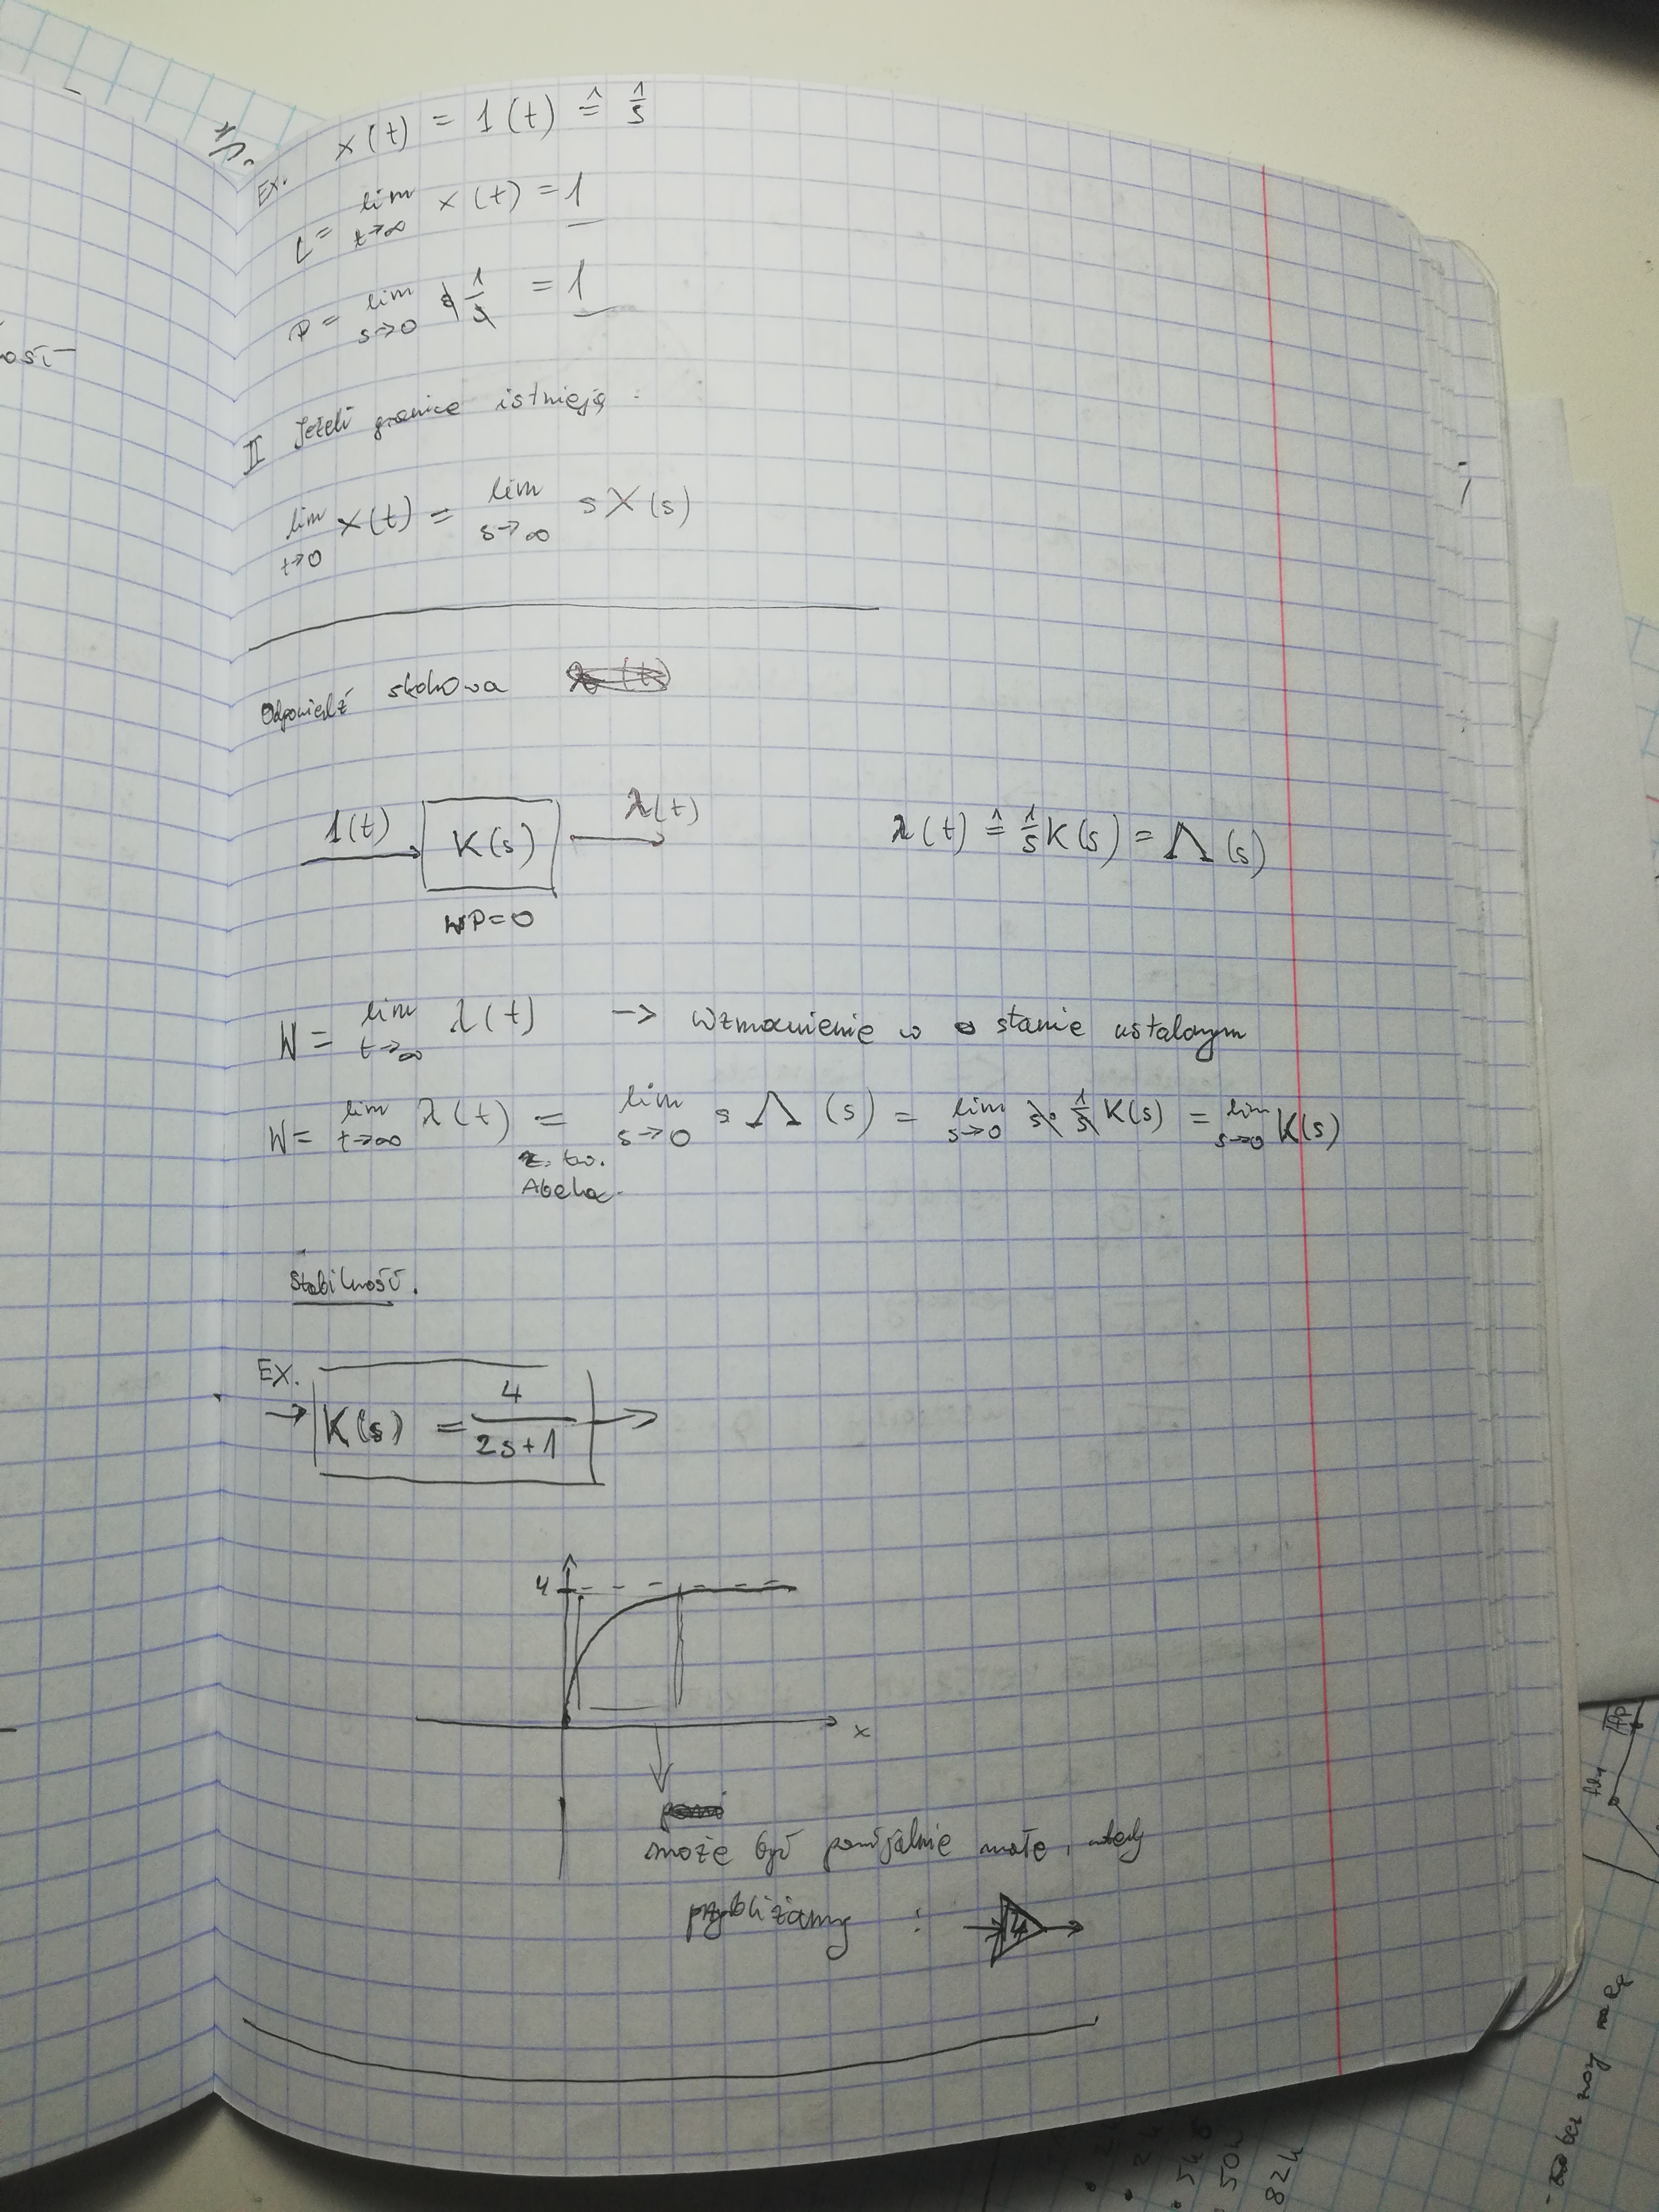 Ex. x(t) = 1(t) ≙ 1/s
L = lim t→∞ x(t) = 1
P = lim s→0 s 1/s = 1
II Jeżeli granice istnieją:
lim t→0 x(t) = lim s→∞ s X(s)
Odpowiedź skokowa
1(t) K(s) λ(t) λ(t) ≙ 1/s K(s) = Λ(s)
WP=0
W = lim t→∞ λ(t) → Wzmocnienie w stanie ustalonym
W = lim t→∞ λ(t) = lim s→0 s Λ(s) = lim s→0 s · 1/s K(s) = lim s→0 K(s)
z. tw.
Abela
Stabilność.
EX.
→ K(s) = 4/(2s+1) →
4
x
może być pomijalnie małe, wtedy
przybliżamy : 4
ość
50
82k